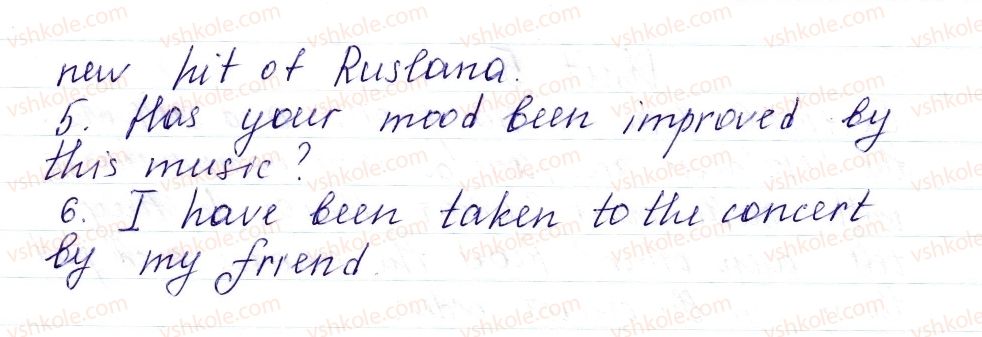 new hit of Ruslana.
5. Has your mood been improved by
this music?
6. I have been taken to the concert
by my friend.